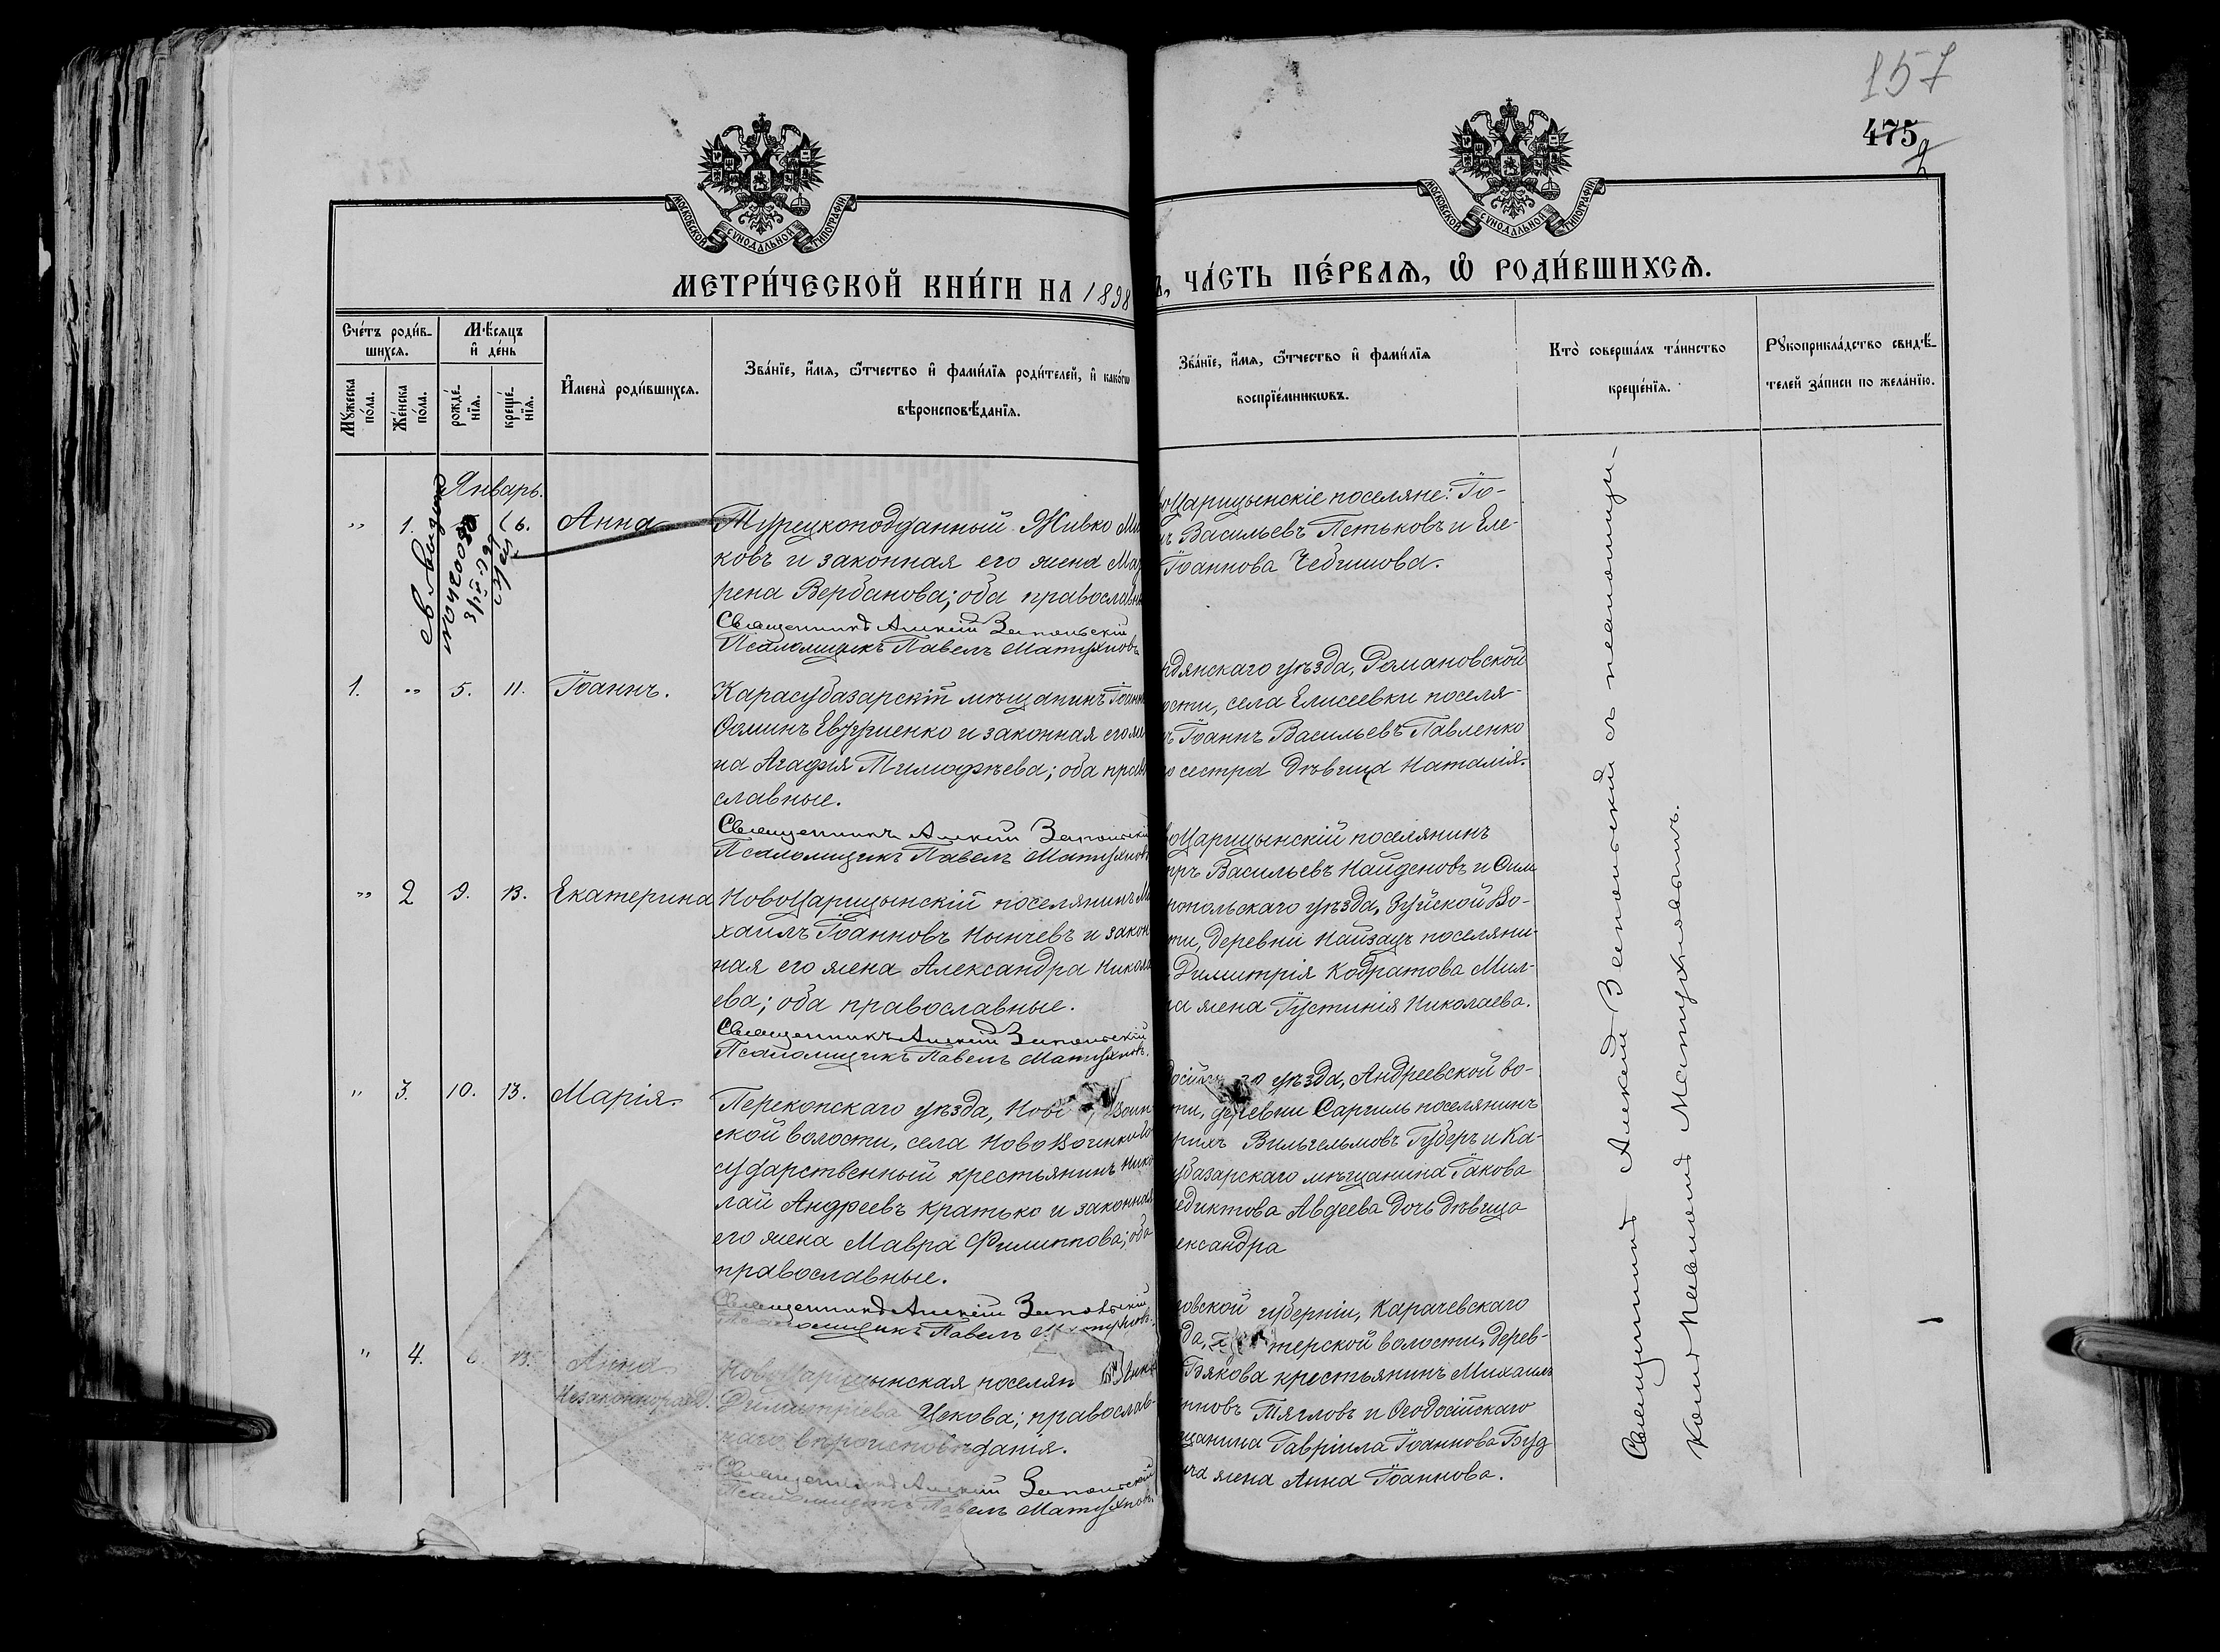 157
475
МОСКОВСКОЙ СѴНОДАЛЬНОЙ ТИПОГРАФІИ
МОСКОВСКОЙ СѴНОДАЛЬНОЙ ТИПОГРАФІИ
МЕТРИ́ЧЕСКОЙ КНИ́ГИ НА 1898
, ЧА́СТЬ ПЕ́РВАѦ, Ѽ РОДИ́ВШИХСѦ.
Сче́тъ роди́в-
шихсѧ.
Мꙋжеска по́ла.
Же́нска по́ла.
Мѣ́сѧцъ
и҆ де́нь
рожде́-
нїѧ.
креще́-
нїѧ.
И҆мена̀ роди́вшихсѧ.
Зва́нїе, и҆́мѧ, ѻ҆́тчество и҆ фами́лїѧ роди́телей, и҆ како́гѡ
вѣроисповѣ́данїѧ.
Зва́нїе, и҆́мѧ, ѻ҆́тчество и҆ фами́лїѧ
воспрїе́мникѡвъ.
Кто̀ соверша́лъ та́инство
креще́нїѧ.
Рꙋкоприкла́дство свидѣ́-
телей за́писи по жела́нїю.
Январь.
" 1. 6. Анна
Турецкоподданный Живко Ми
ковъ и законная его жена Ма
рена Вербанова; оба православн
Священникъ Алексій Запольскій
Псаломщикъ Павелъ Матухновъ
оЦарицынскіе поселяне: Іо-
ъ Васильевъ Петьковъ и Еле-
Іоаннова Чебишова.
1. " 5. 11. Іоаннъ.
Карасубазарскій мѣщанинъ Іоанн
Фоминъ Евфриенко и законная его же
на Агафія Тимофѣева; оба прав
славные.
Священникъ Алексій Запольскій
Псаломщикъ Павелъ Матухновъ
дянскаго уѣзда, Романовской
ости, села Елисеевки поселя-
ъ Іоаннъ Васильевъ Павленко
о сестра дѣвица Наталія.
" 2 9. 13. Екатерина
НовоЦарицынскій поселянинъ Ми
хаилъ Іоанновъ Нынчевъ и закон
ная его жена Александра Никола
ева; оба православные.
Священникъ Алексій Запольскій
Псаломщикъ Павелъ Матухновъ.
оЦарицынскій поселянинъ
тръ Васильевъ Найденовъ и Сим
ропольскаго уѣзда, Зуйской Во-
ти, деревни Найзацъ поселяни-
Димитрія Кодратова Мил-
а жена Іустинія Николаева.
" 3. 10. 13. Марія.
Перекопскаго уѣзда, Ново Воин
ской волости, села НовоВоинки го
сударственный крестьянинъ Нико
лай Андреевъ Кратько и законная
его жена Мавра Филиппова; оба
православные.
Священникъ Алексій Запольскій
Псаломщикъ Павелъ Матухновъ.
го уѣзда, Андреевской во-
ти, деревни Саргиль поселянинъ
рихъ Вильгельмовъ Губеръ и Ка-
убазарскаго мѣщанина Іакова
едиктова Авдеева дочь дѣвица
ександра
" 4. 6. 13. Анна
Незаконнорожд.
НовоЦарицынская поселян
Димитріева Цекова; православ-
наго вѣроисповѣданія.
Священникъ Алексій Запольскій
Псаломщикъ Павелъ Матухновъ.
ловской губерніи, Карачевскаго
да, терской волости, дерев-
Бякова крестьянинъ Михаилъ
нновъ Тягловъ и Ѳеодосійскаго
щанина Гавріила Іоаннова Буд
ча жена Анна Іоаннова.
Священникъ Алексій Запольскій съ псаломщи-
комъ Павломъ Матухновымъ.